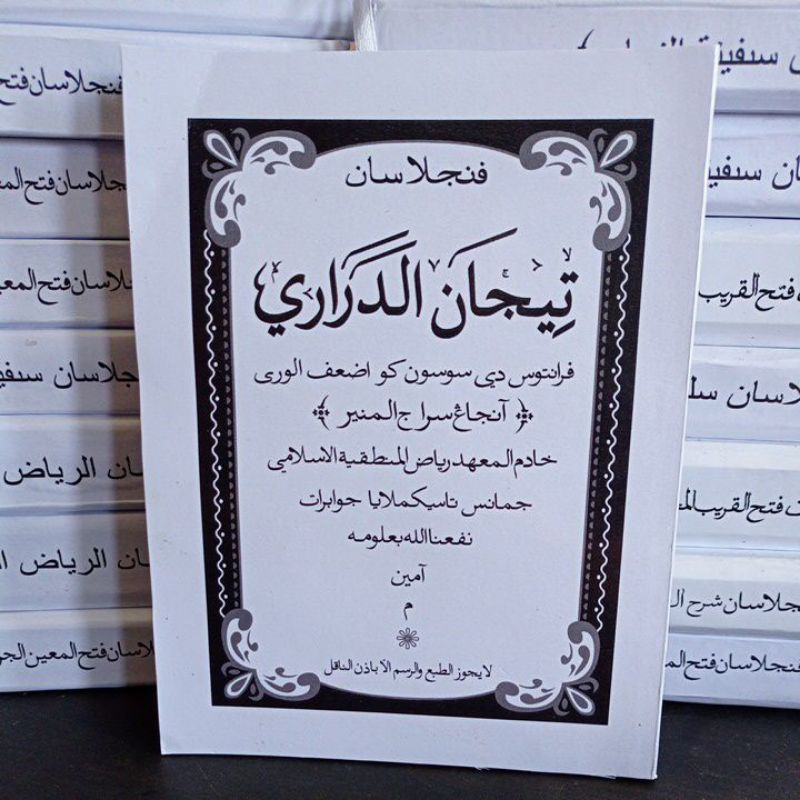 فنجلاسان
تِيجَانَ الدَّرَارِي
فرانتوس دبي سوسون كو اضعف الورى
﴿ آنجاڠ سراج المنير ﴾
خادم المعهد رياض المنطقية الاسلامي
جمانس تاسيكملايا جوابرات
نفعنا الله بعلومه
آمين
م
لا يجوز الطبع والرسم الآ باذن الناقل
فنجلاسان فتح
فنجلاسان فتح المعين
جلاسان سفي
ان الرياض
ان الرياض ا
لاسان فتح المعين الجو
سفينة
ان سفينة
فتح القريب
لاسان سل
ت فتح القريب الم
جلاسان شرح ال
فنجلاسان فتح الم